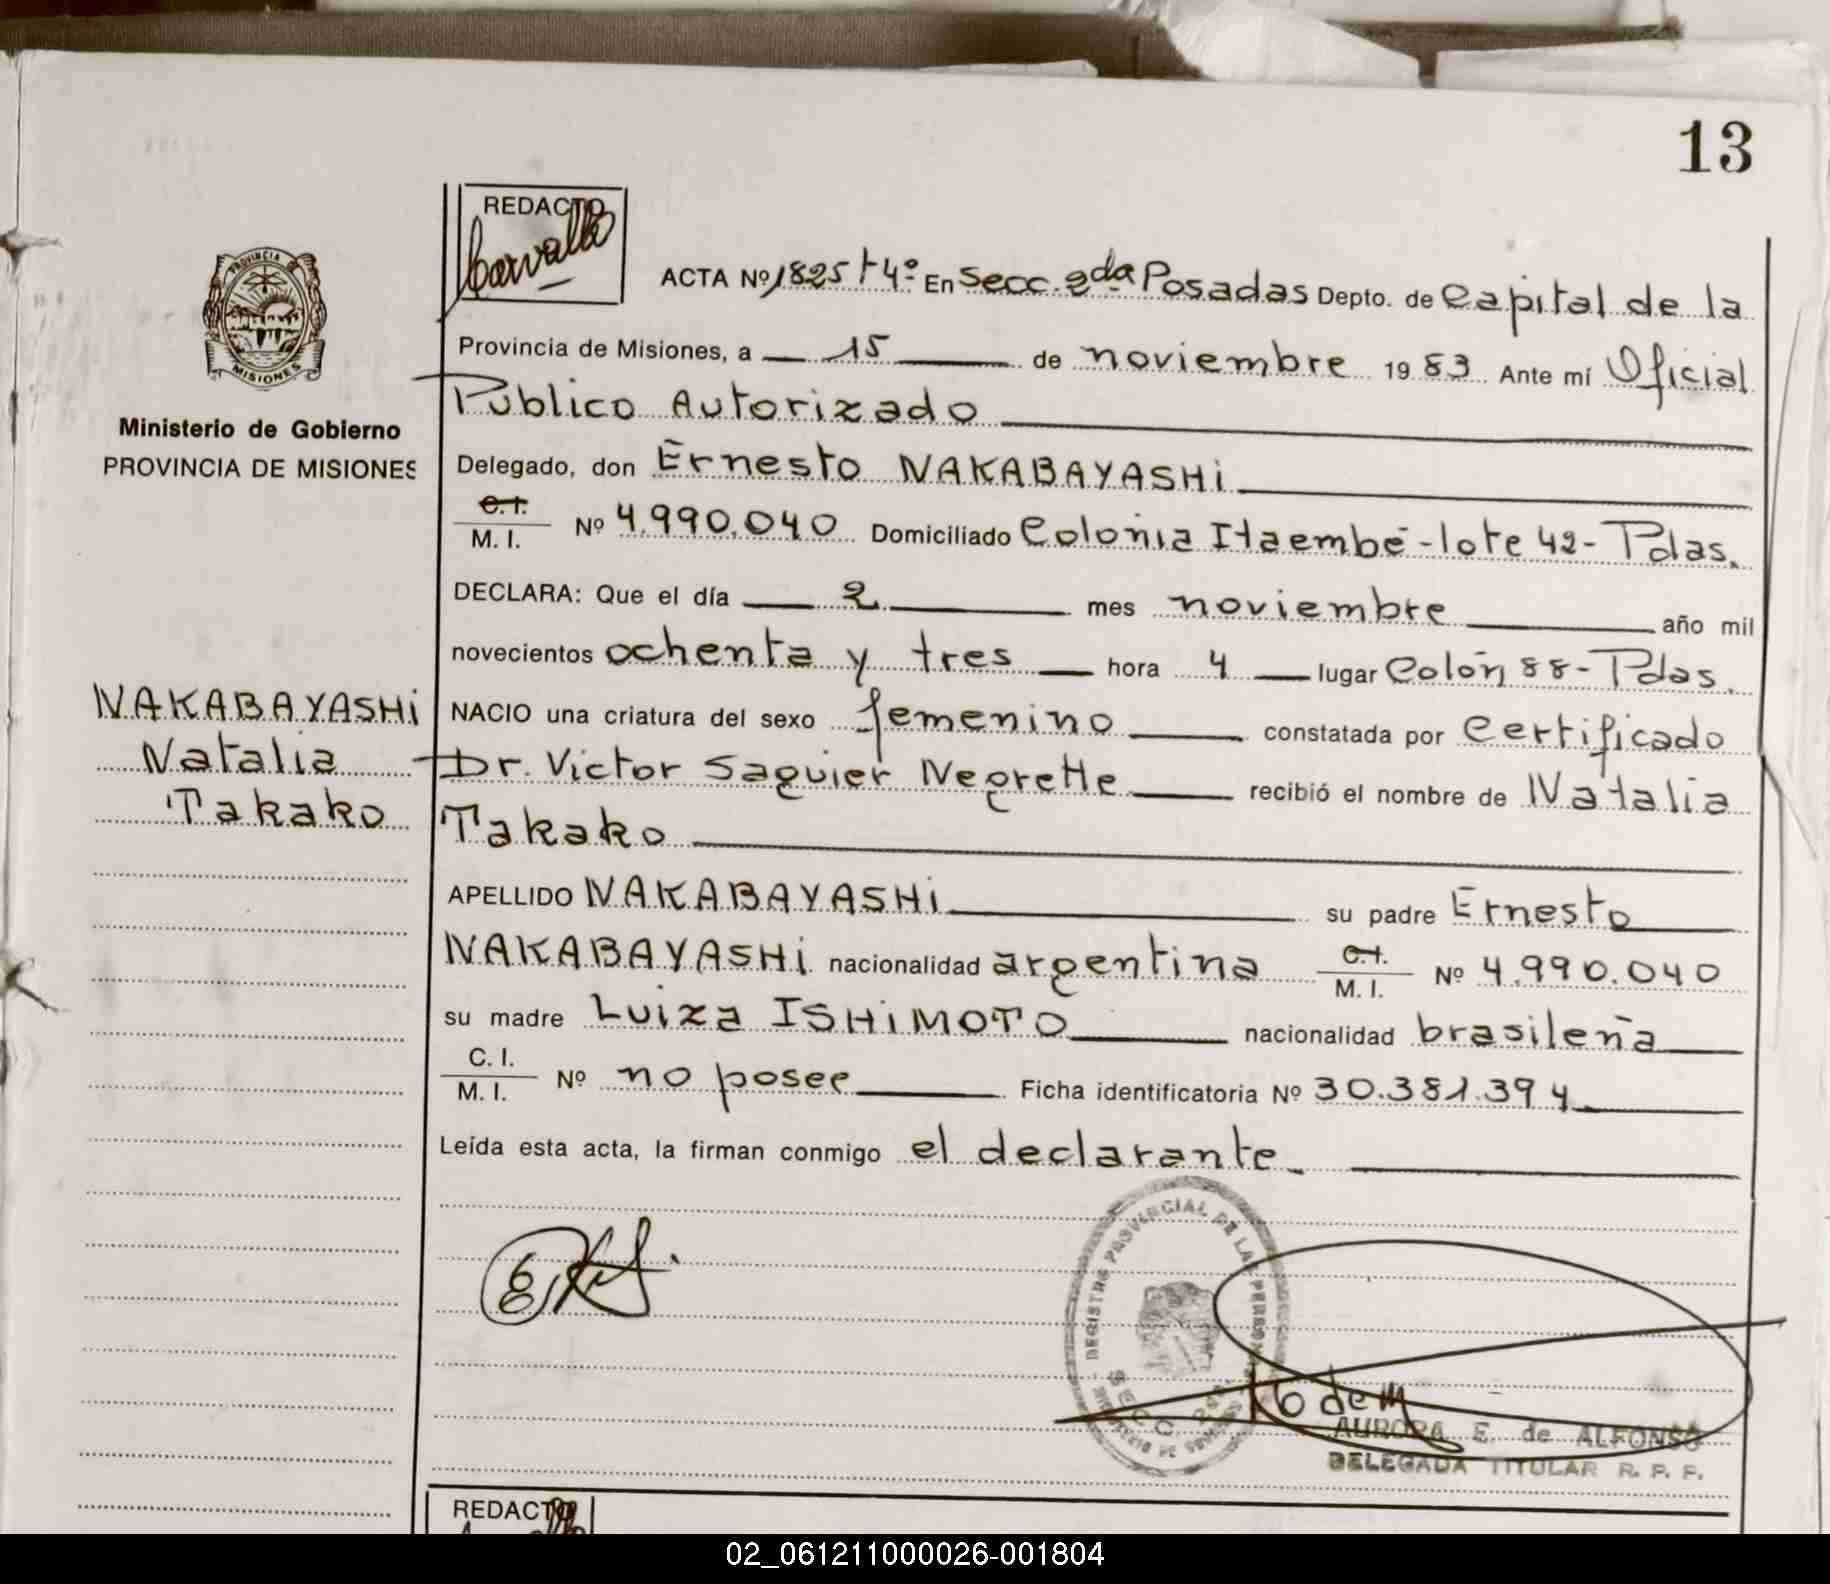 13
REDACTO
Carvallo
ACTA Nº 1825 T 4º En Secc. 2da Posadas Depto. de Capital de la
Provincia de Misiones, a 15 de noviembre 1983 Ante mí Oficial
Público Autorizado
Delegado, don Ernesto NAKABAYASHi
C.I. M.I. Nº 4.990.040 Domiciliado Colonia Itaembé - lote 42 - Pdas.
DECLARA: Que el día 2 mes noviembre año mil
novecientos ochenta y tres hora 4 lugar Colón 88 - Pdas.
NACIO una criatura del sexo femenino constatada por Certificado
Dr. Victor Saguier Negrette recibió el nombre de Natalia
Takako
APELLIDO NAKABAYASHi su padre Ernesto
NAKABAYASHi nacionalidad argentina C.I. M.I. Nº 4.990.040
su madre Luiza ISHiMOTO nacionalidad brasileña
C.I. M.I. Nº no posee Ficha identificatoria Nº 30.381.394
Leída esta acta, la firman conmigo el declarante.
PROVINCIA DE
MISIONES
Ministerio de Gobierno
PROVINCIA DE MISIONES
NAKABAYASHi
Natalia
Takako
REGISTRO PROVINCIAL DE LAS PERSONAS
SECC. 2da
AURORA E. de ALFONSO
DELEGADA TITULAR R. P. P.
REDACTO
02_061211000026-001804